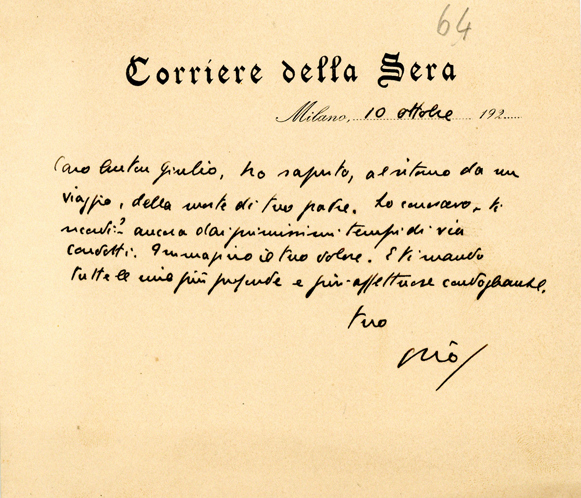 64
Corriere della Sera
Milano, 10 ottobre 192
Caro Anton Giulio, ho saputo, al ritorno da un
viaggio, della morte di tuo padre. Lo conoscevo, ti
ricordi? ancora dai primissimi tempi di via
Condotti. Immagino il tuo dolore. E ti mando
tutte le mie più profonde e più affettuose condoglianze.
tuo